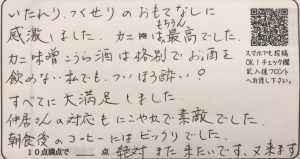 いたれり、つくせりのおもてなしに
感激しました。カニはもちろん最高でした。
カニ味噌こうら酒は格別でお酒を
飲めない私でも、ついほろ酔い…?
すべてに大満足しました
仲居さんの対応もにこやかで素敵でした。
朝食後のコーヒーにはビックリでした。
10点満点で___点 絶対また来たいです、又来ます
スマホでも投稿
OK！チェック欄
記入後フロント
へお渡し下さい。